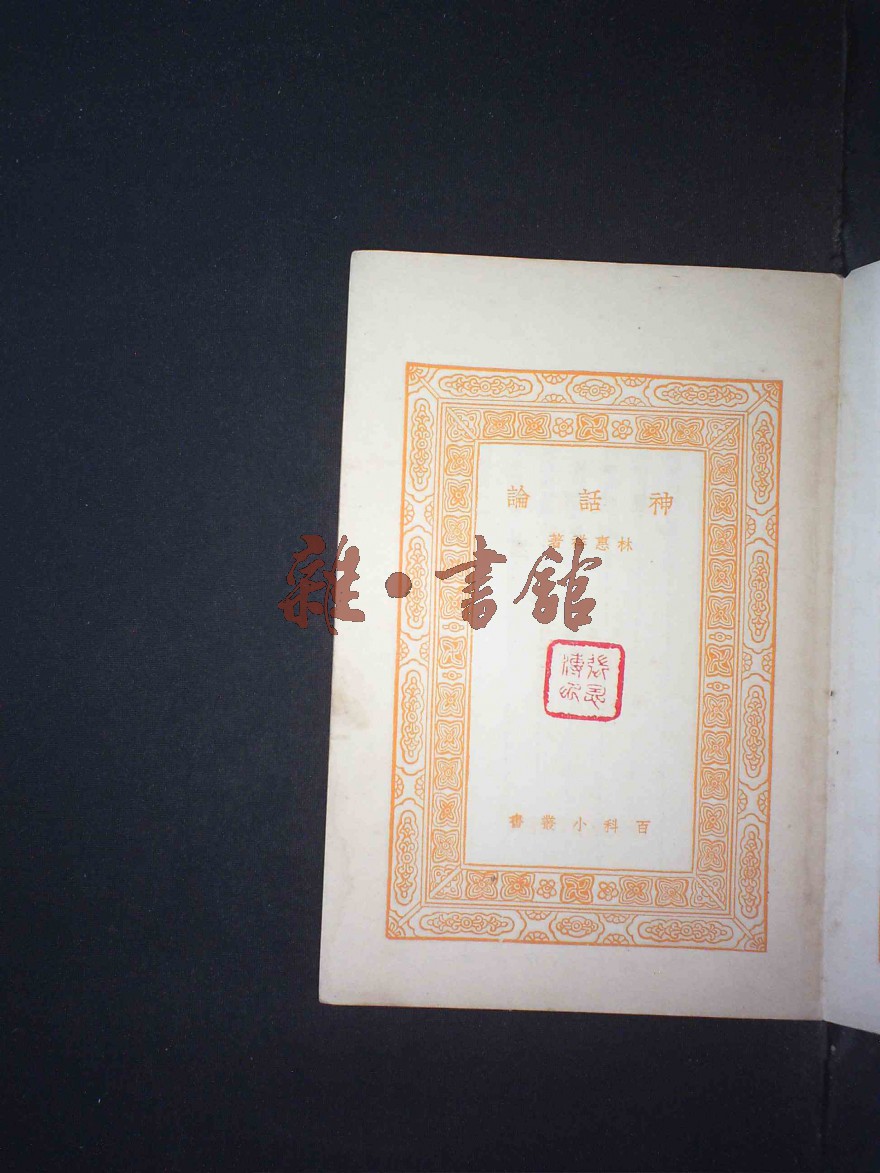 神話論
林惠祥著
雜·書館
百科小叢書